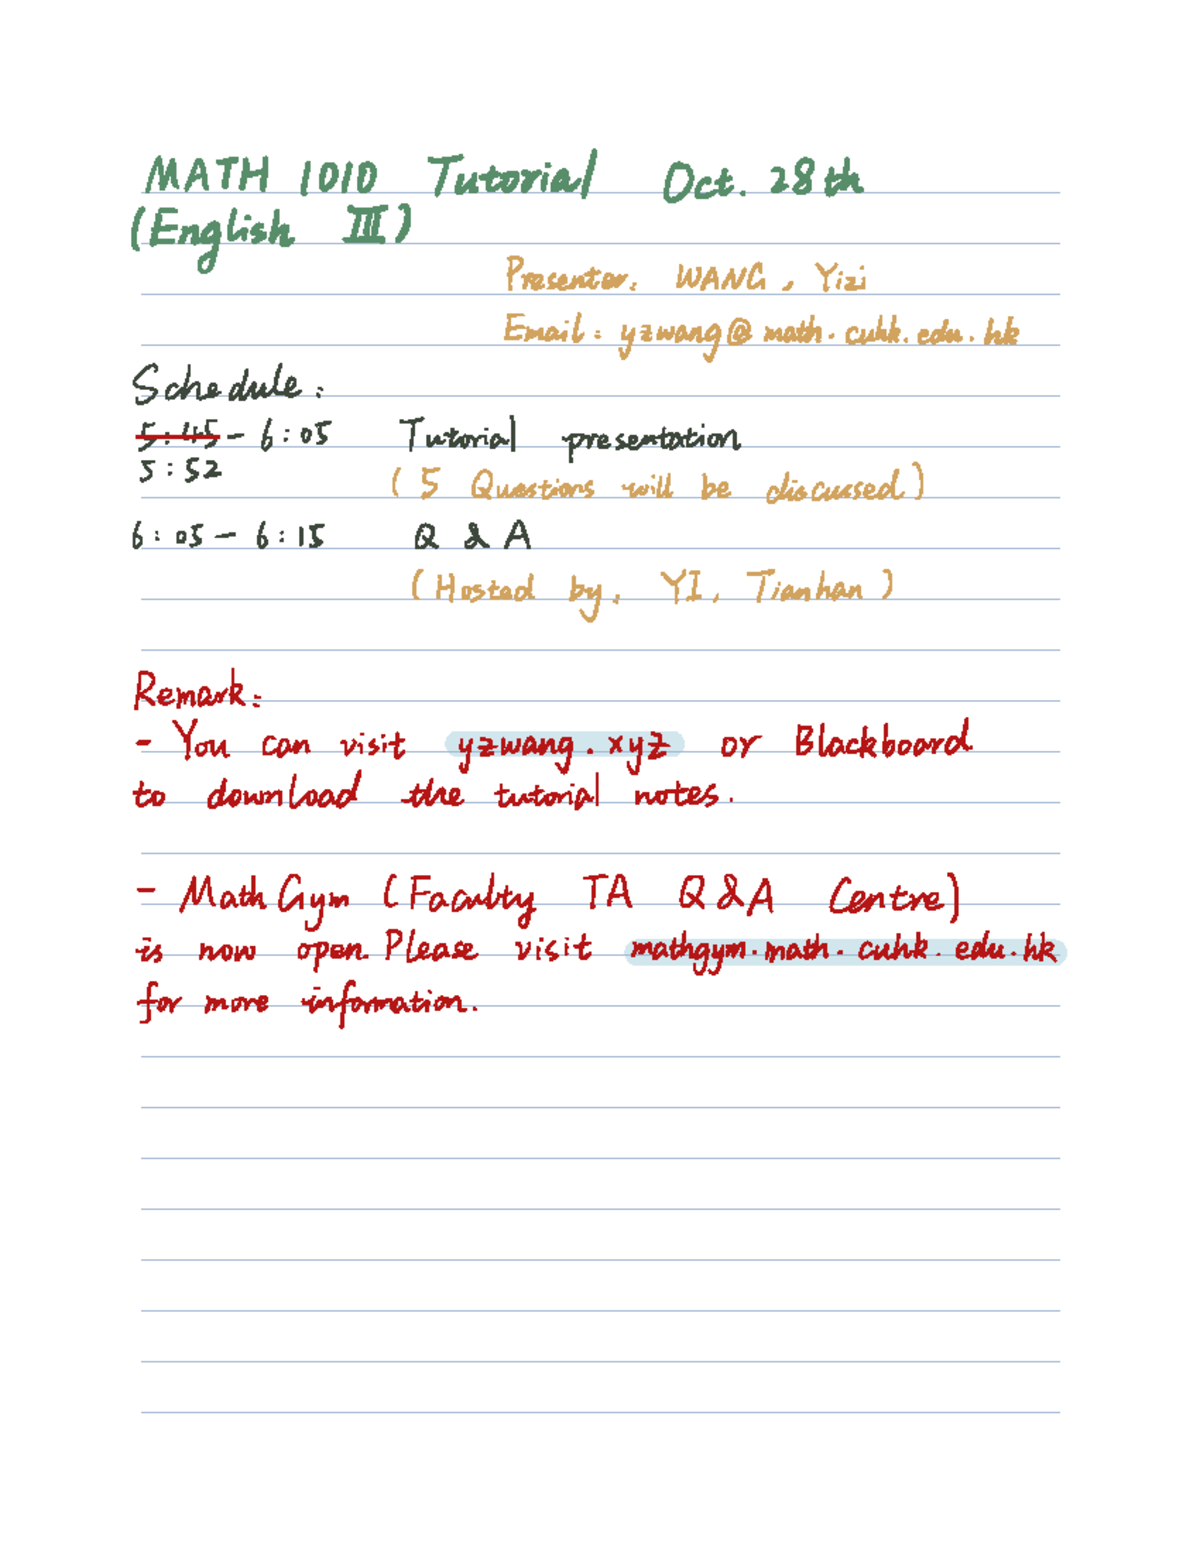 MATH 1010 Tutorial Oct. 28th
(English III)
Presenter: WANG, Yizi
Email: yzwang@math.cuhk.edu.hk
Schedule:
5:45 - 6:05 Tutorial presentation
5:52
( 5 Questions will be discussed )
6:05 - 6:15 Q & A
( Hosted by: YI, Tianhan )
Remark:
- You can visit yzwang.xyz or Blackboard
to download the tutorial notes.
- Math Gym (Faculty TA Q & A Centre)
is now open. Please visit mathgym.math.cuhk.edu.hk
for more information.